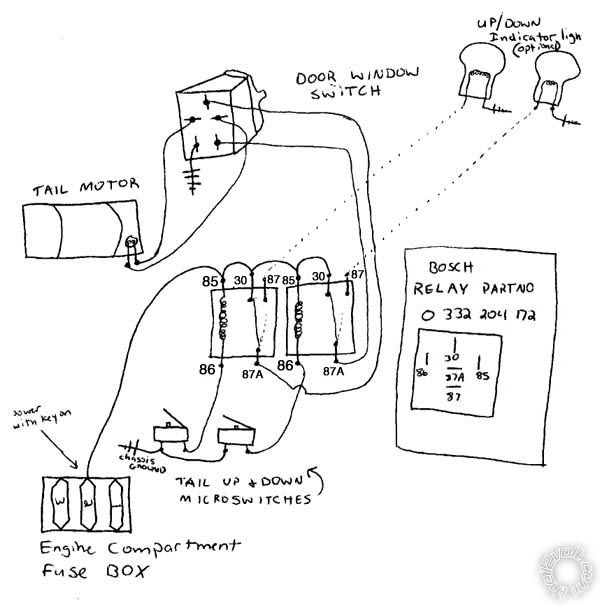 UP/DOWN
Indicator ligh
(optional)
DOOR WINDOW
SWITCH
TAIL MOTOR
85
30
87
85
30
87
86
87A
86
87A
BOSCH
RELAY PART NO
0 332 204 172
30
86
87A
85
87
power
with key on
chassis
GROUND
TAIL UP & DOWN
MICROSWITCHES
3
2
1
Engine Compartment
Fuse BOX
the12volt.com